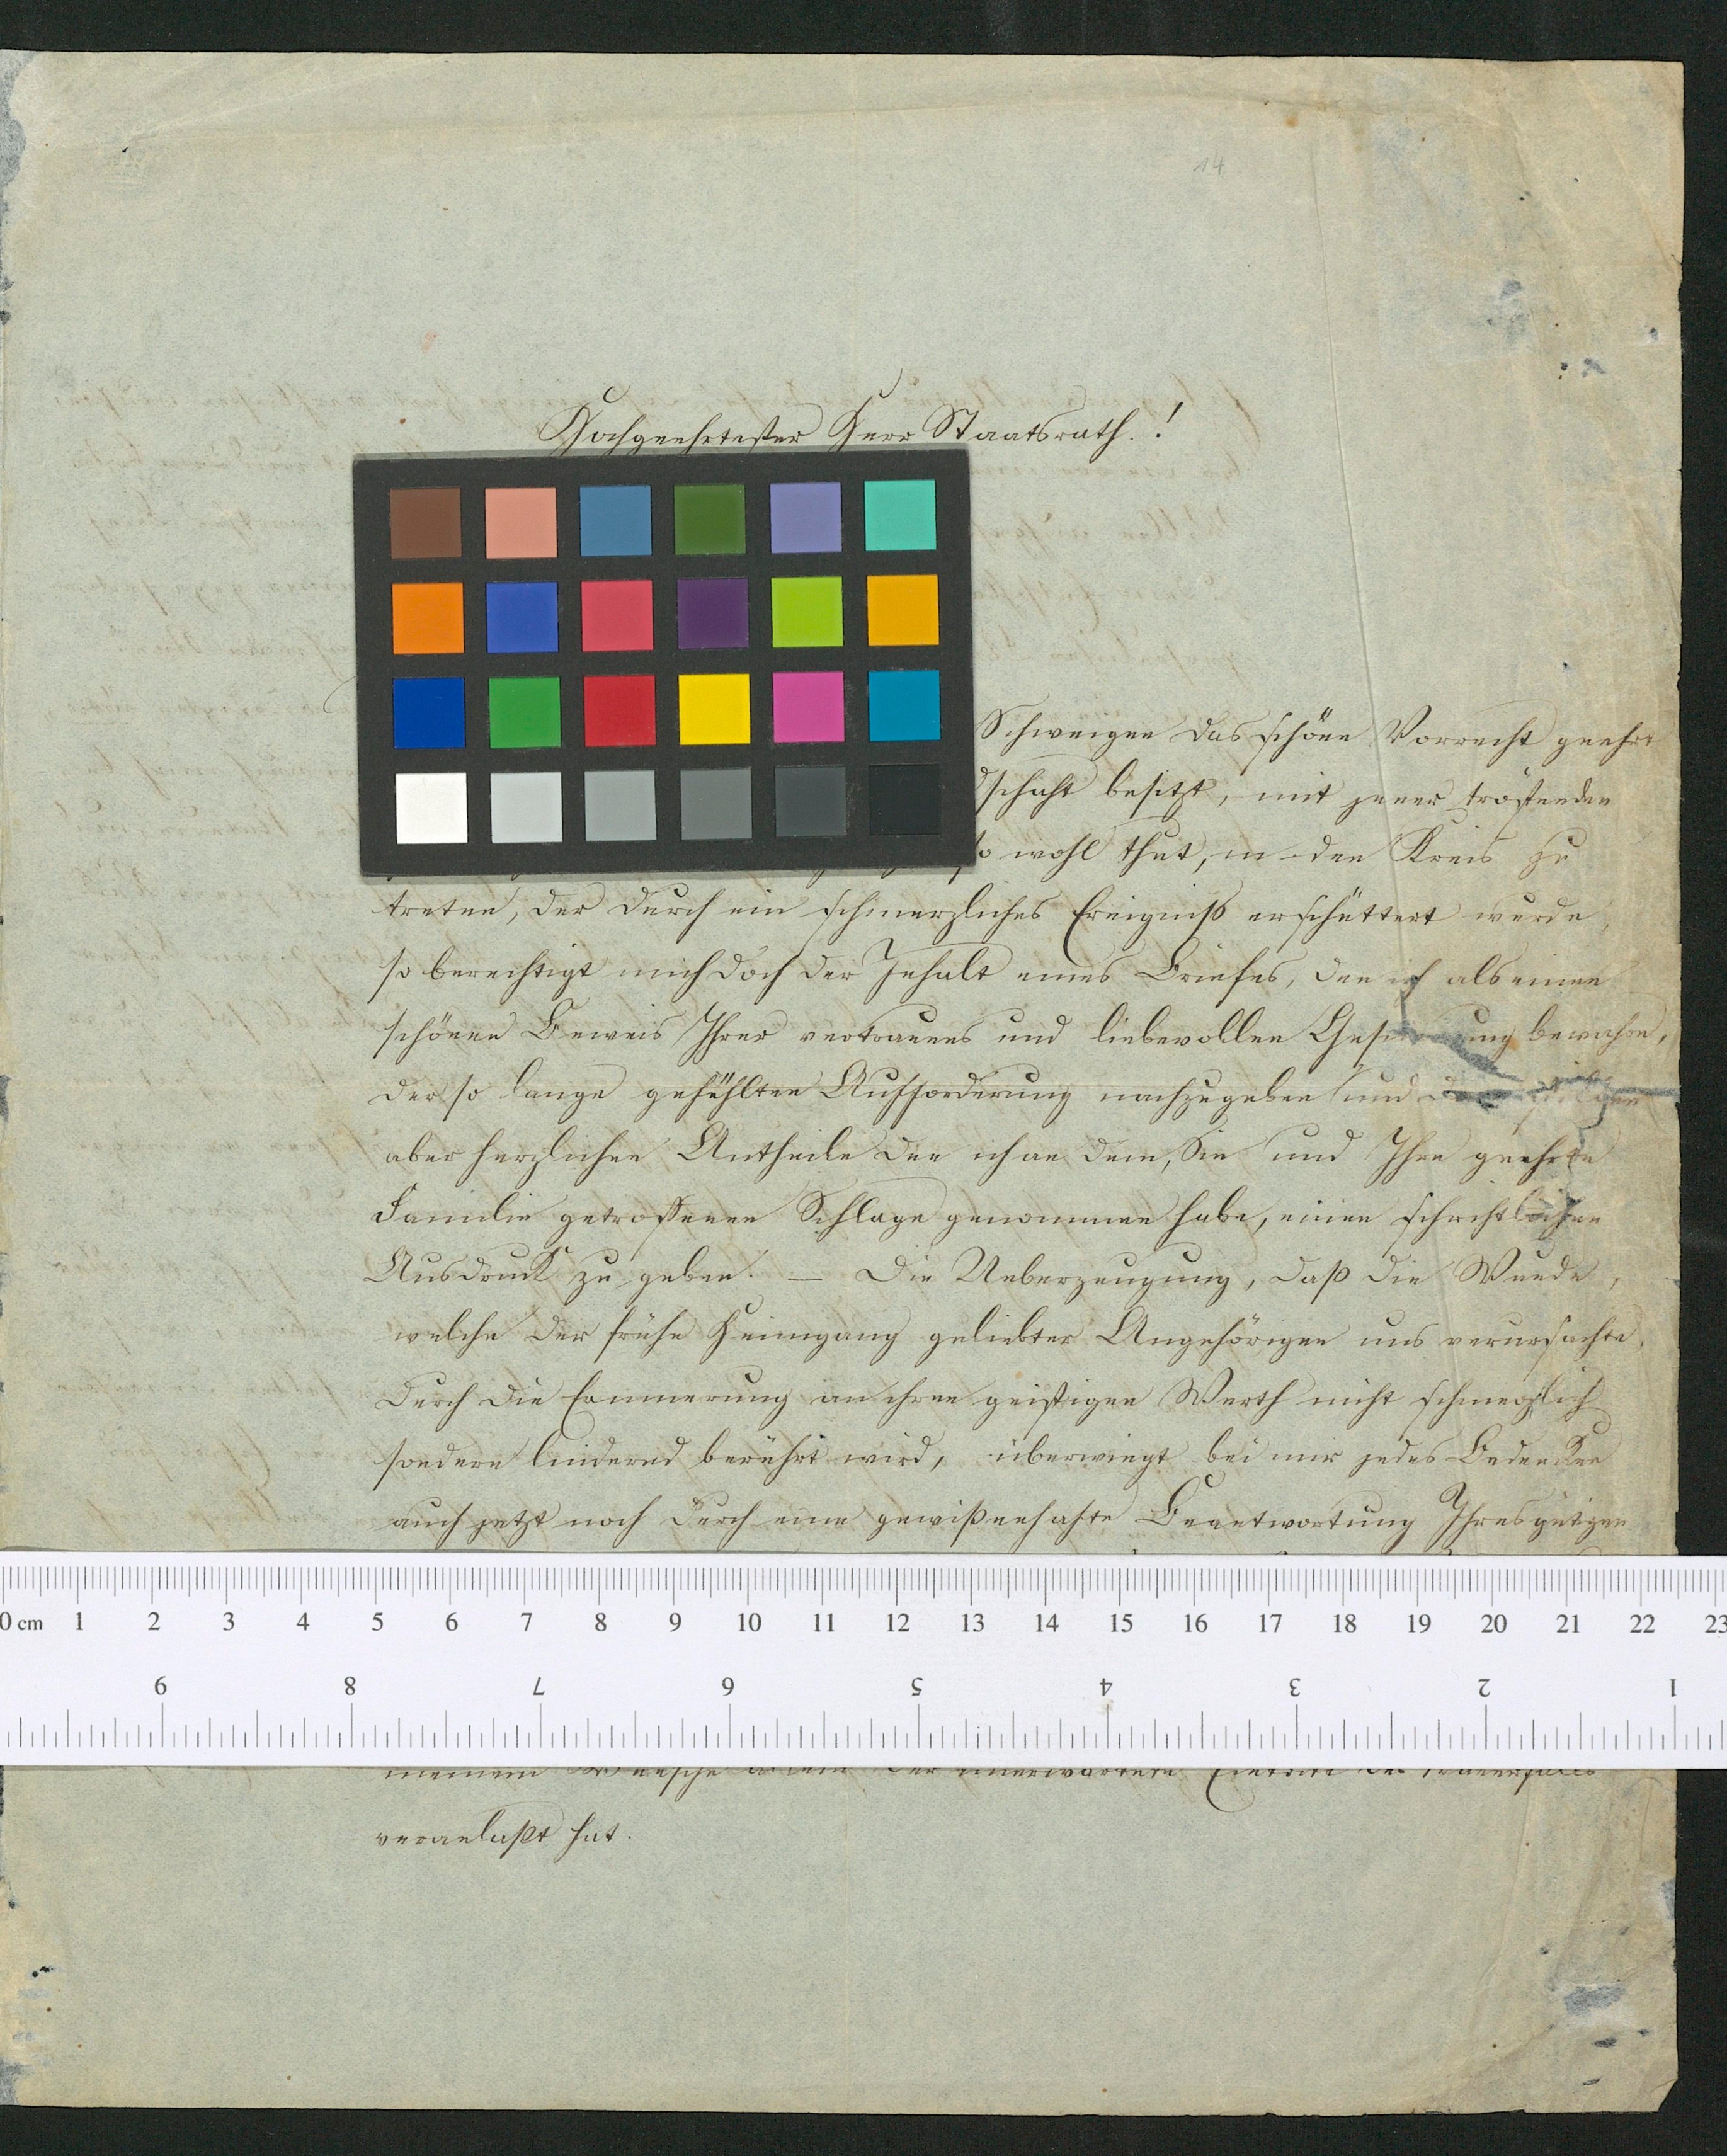 14
Hochgeehrtester Herr Staatsrath.!
Schweigen das schöne Vorrecht geehrt
dschaft besitzt, mit jener tröstenden
so wohl thut, in den Kreis zu
treten, der durch ein schmerzliches Ereigniß erschüttert wurde,
so berechtigt mich doch der Inhalt eines Briefes, den ich als einen
schönen Beweis Ihrer vertrauens und liebevollen Gesinnung bewahre,
der so lange gefühlten Aufforderung nachzugeben und
aber herzlichen Antheile den ich an dem, Sie und Ihre geehrte
Familie getroffenen Schlage genommen habe, einen schriftlichen
Ausdruck zu geben. — Die Ueberzeugung, daß die Wunde,
welche der frühe Heimgang geliebter Angehörigen uns verursachte,
durch die Erinnerung an ihren geistigen Werth nicht schmerzlich
sondern lindernd berührt wird, überwiegt bei mir jedes Bedenken
auch jetzt noch durch eine gewißenhafte Beantwortung Ihres gütigen
0 cm 1 2 3 4 5 6 7 8 9 10 11 12 13 14 15 16 17 18 19 20 21 22 23
9 8 7 6 5 4 3 2 1
meinem Wunsche der unerwartete Eintritt des Trauerfalls
veranlaßt hat.